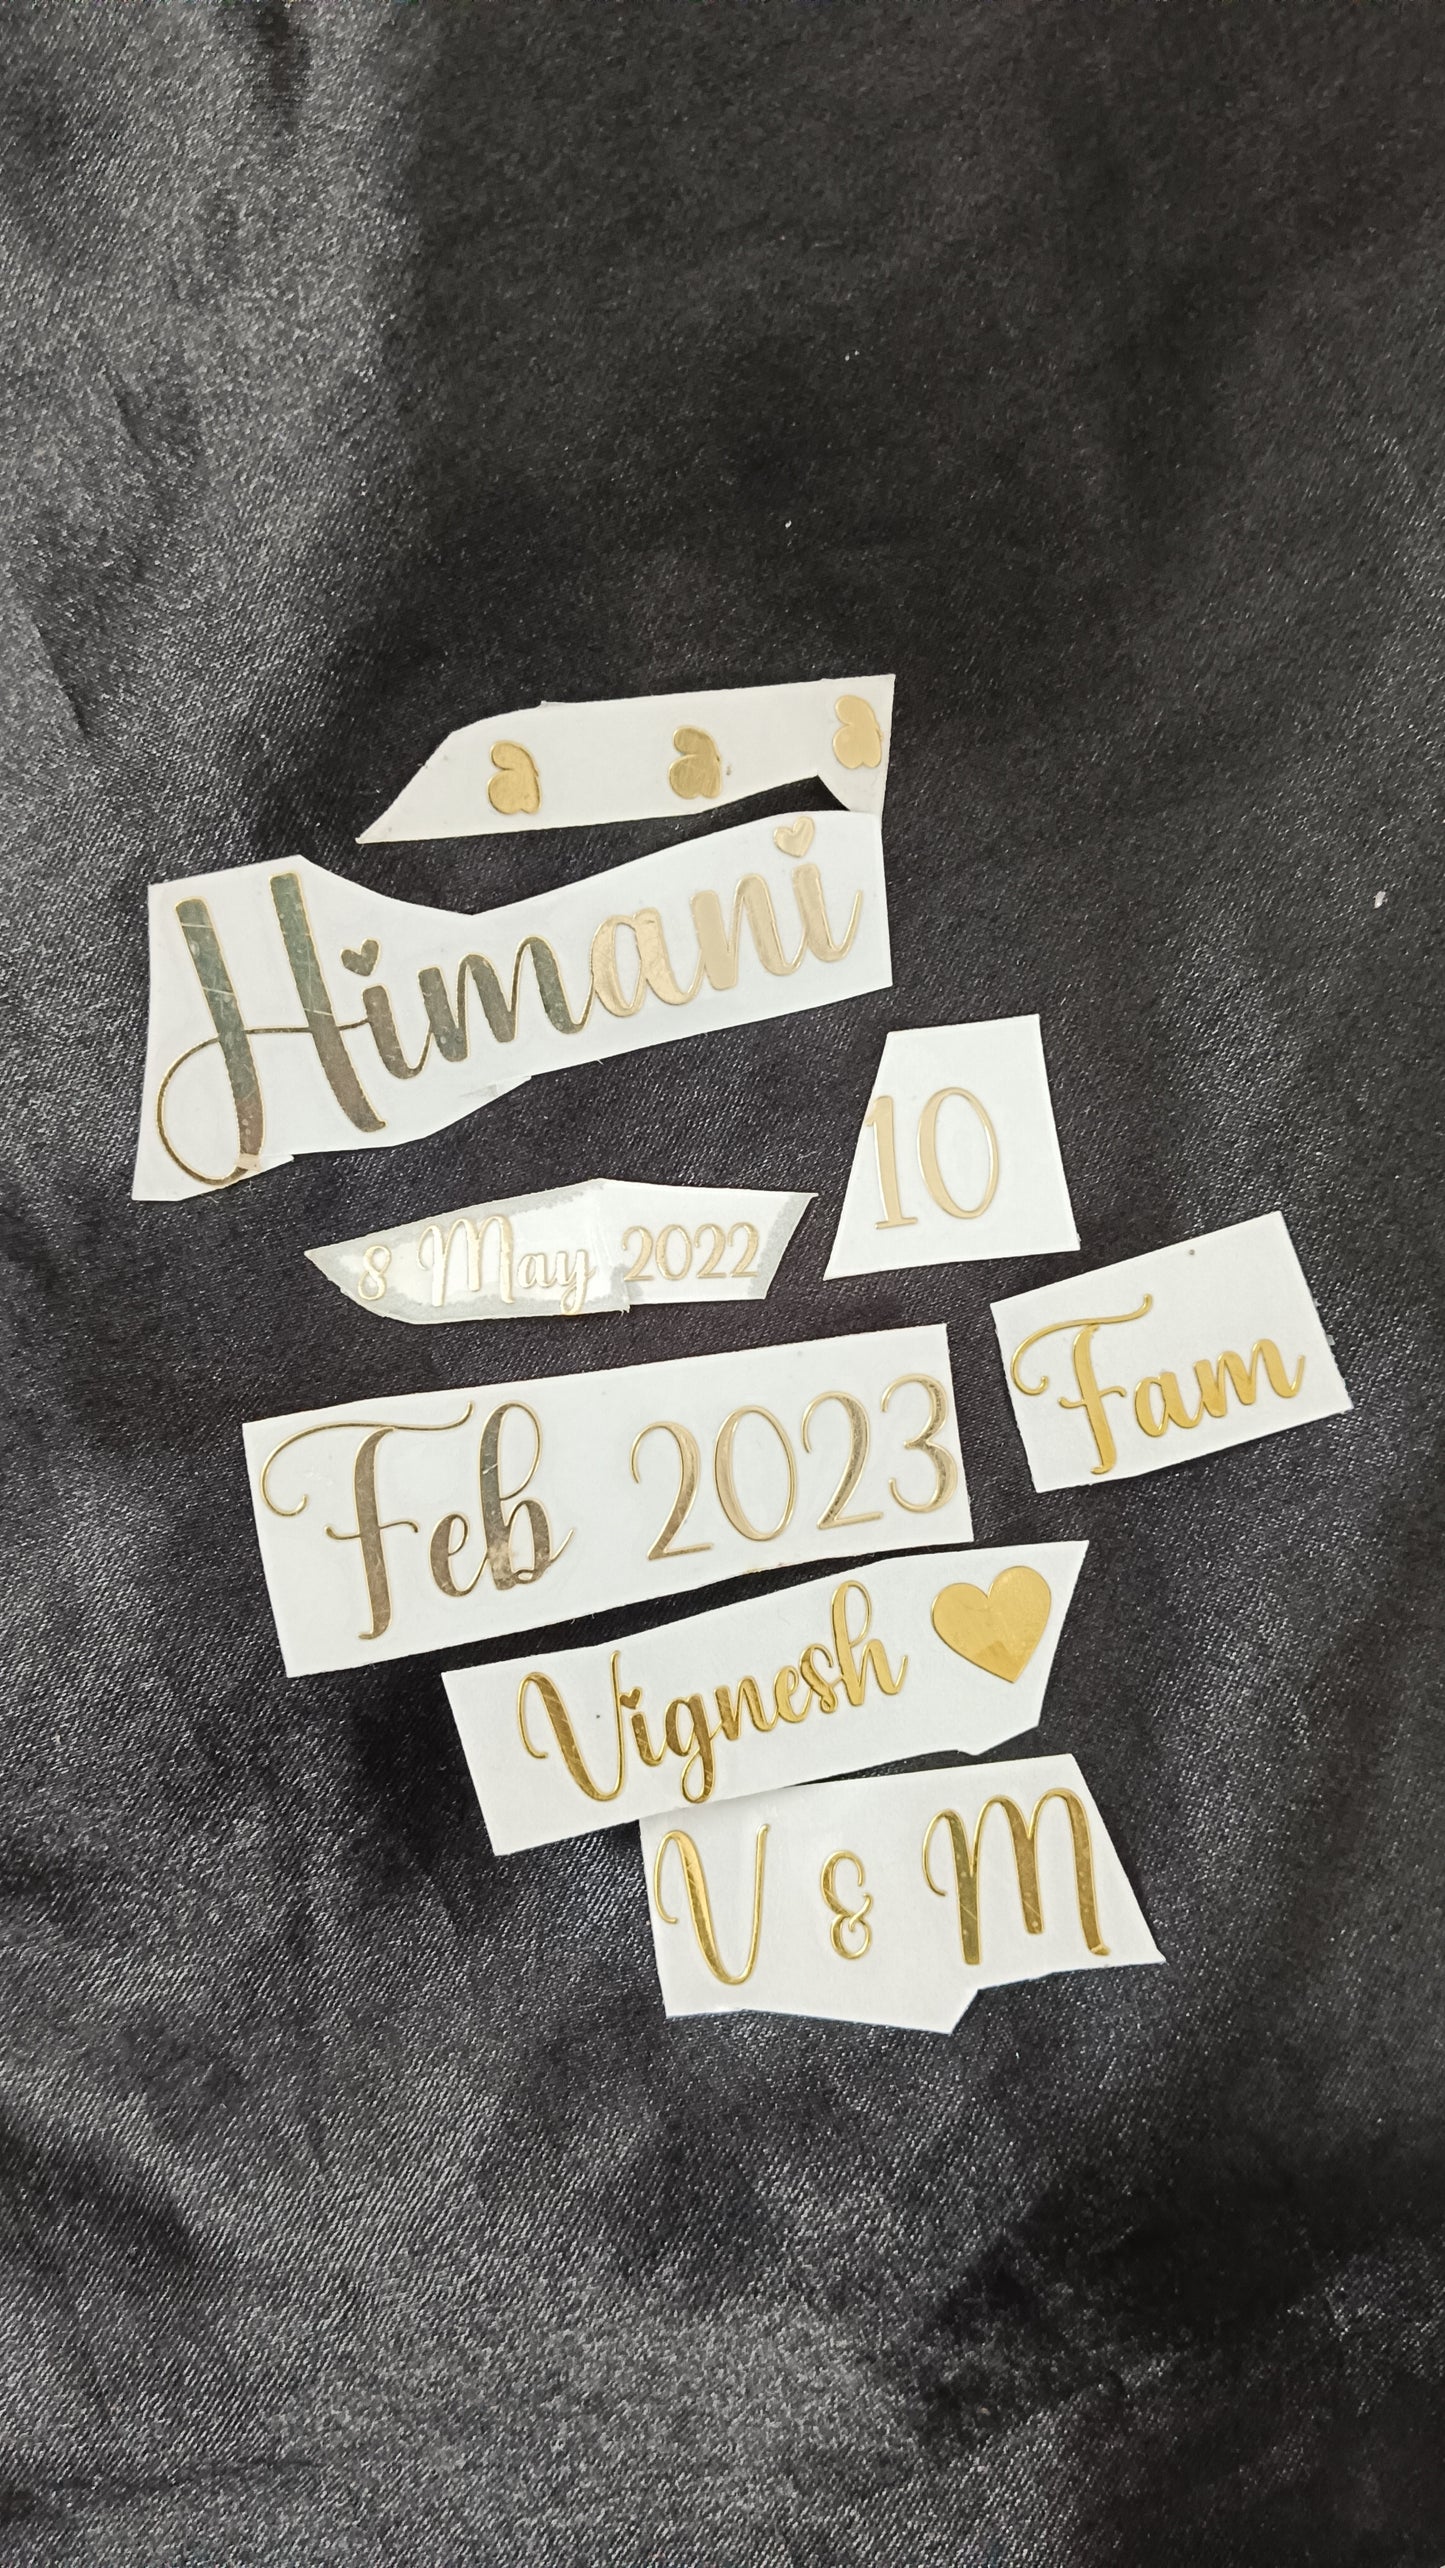 Himani
10
8 May 2022
Fam
Feb 2023
Vignesh
V & M